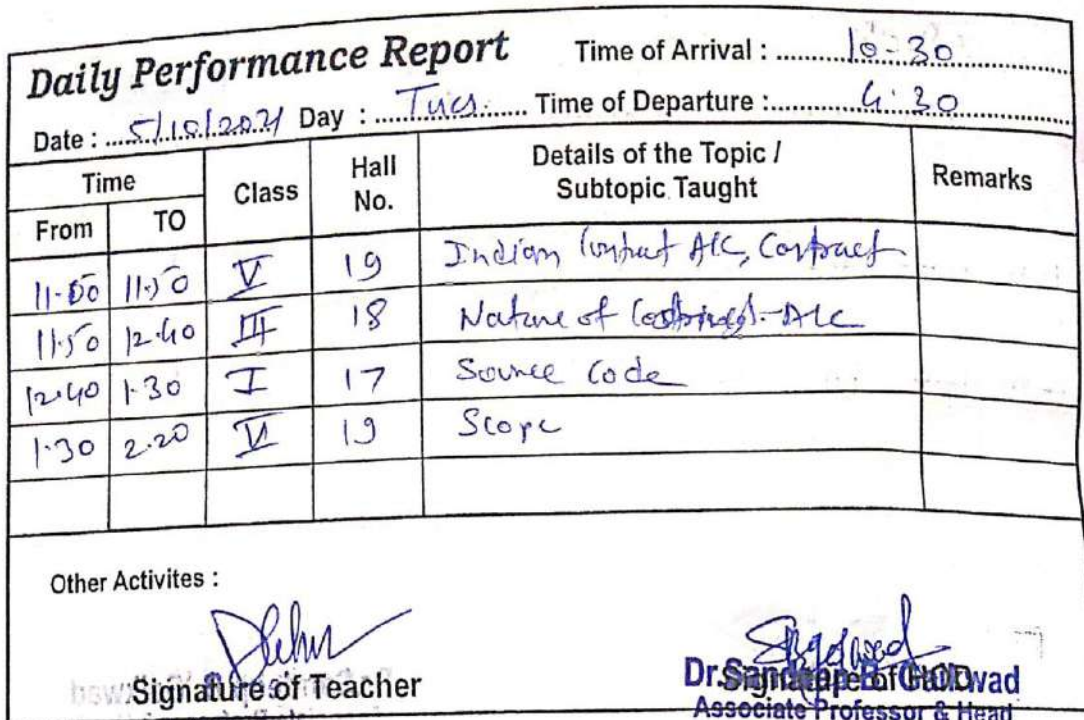 Daily Performance Report Time of Arrival : 10-30
Date : 5/10/2021 Day : Tues. Time of Departure : 4.30
Time Class Hall No. Details of the Topic / Subtopic Taught Remarks
From TO
11.00 11.50 V 19 Indian Contract Act, Contract
11.50 12.40 III 18 Nature of
12.40 1.30 I 17 Source Code
1.30 2.20 19 Scope
Other Activites :
Signature of Teacher Signature of HOD
Dr.Sandeep B. Gaikwad
Associate Professor & Head